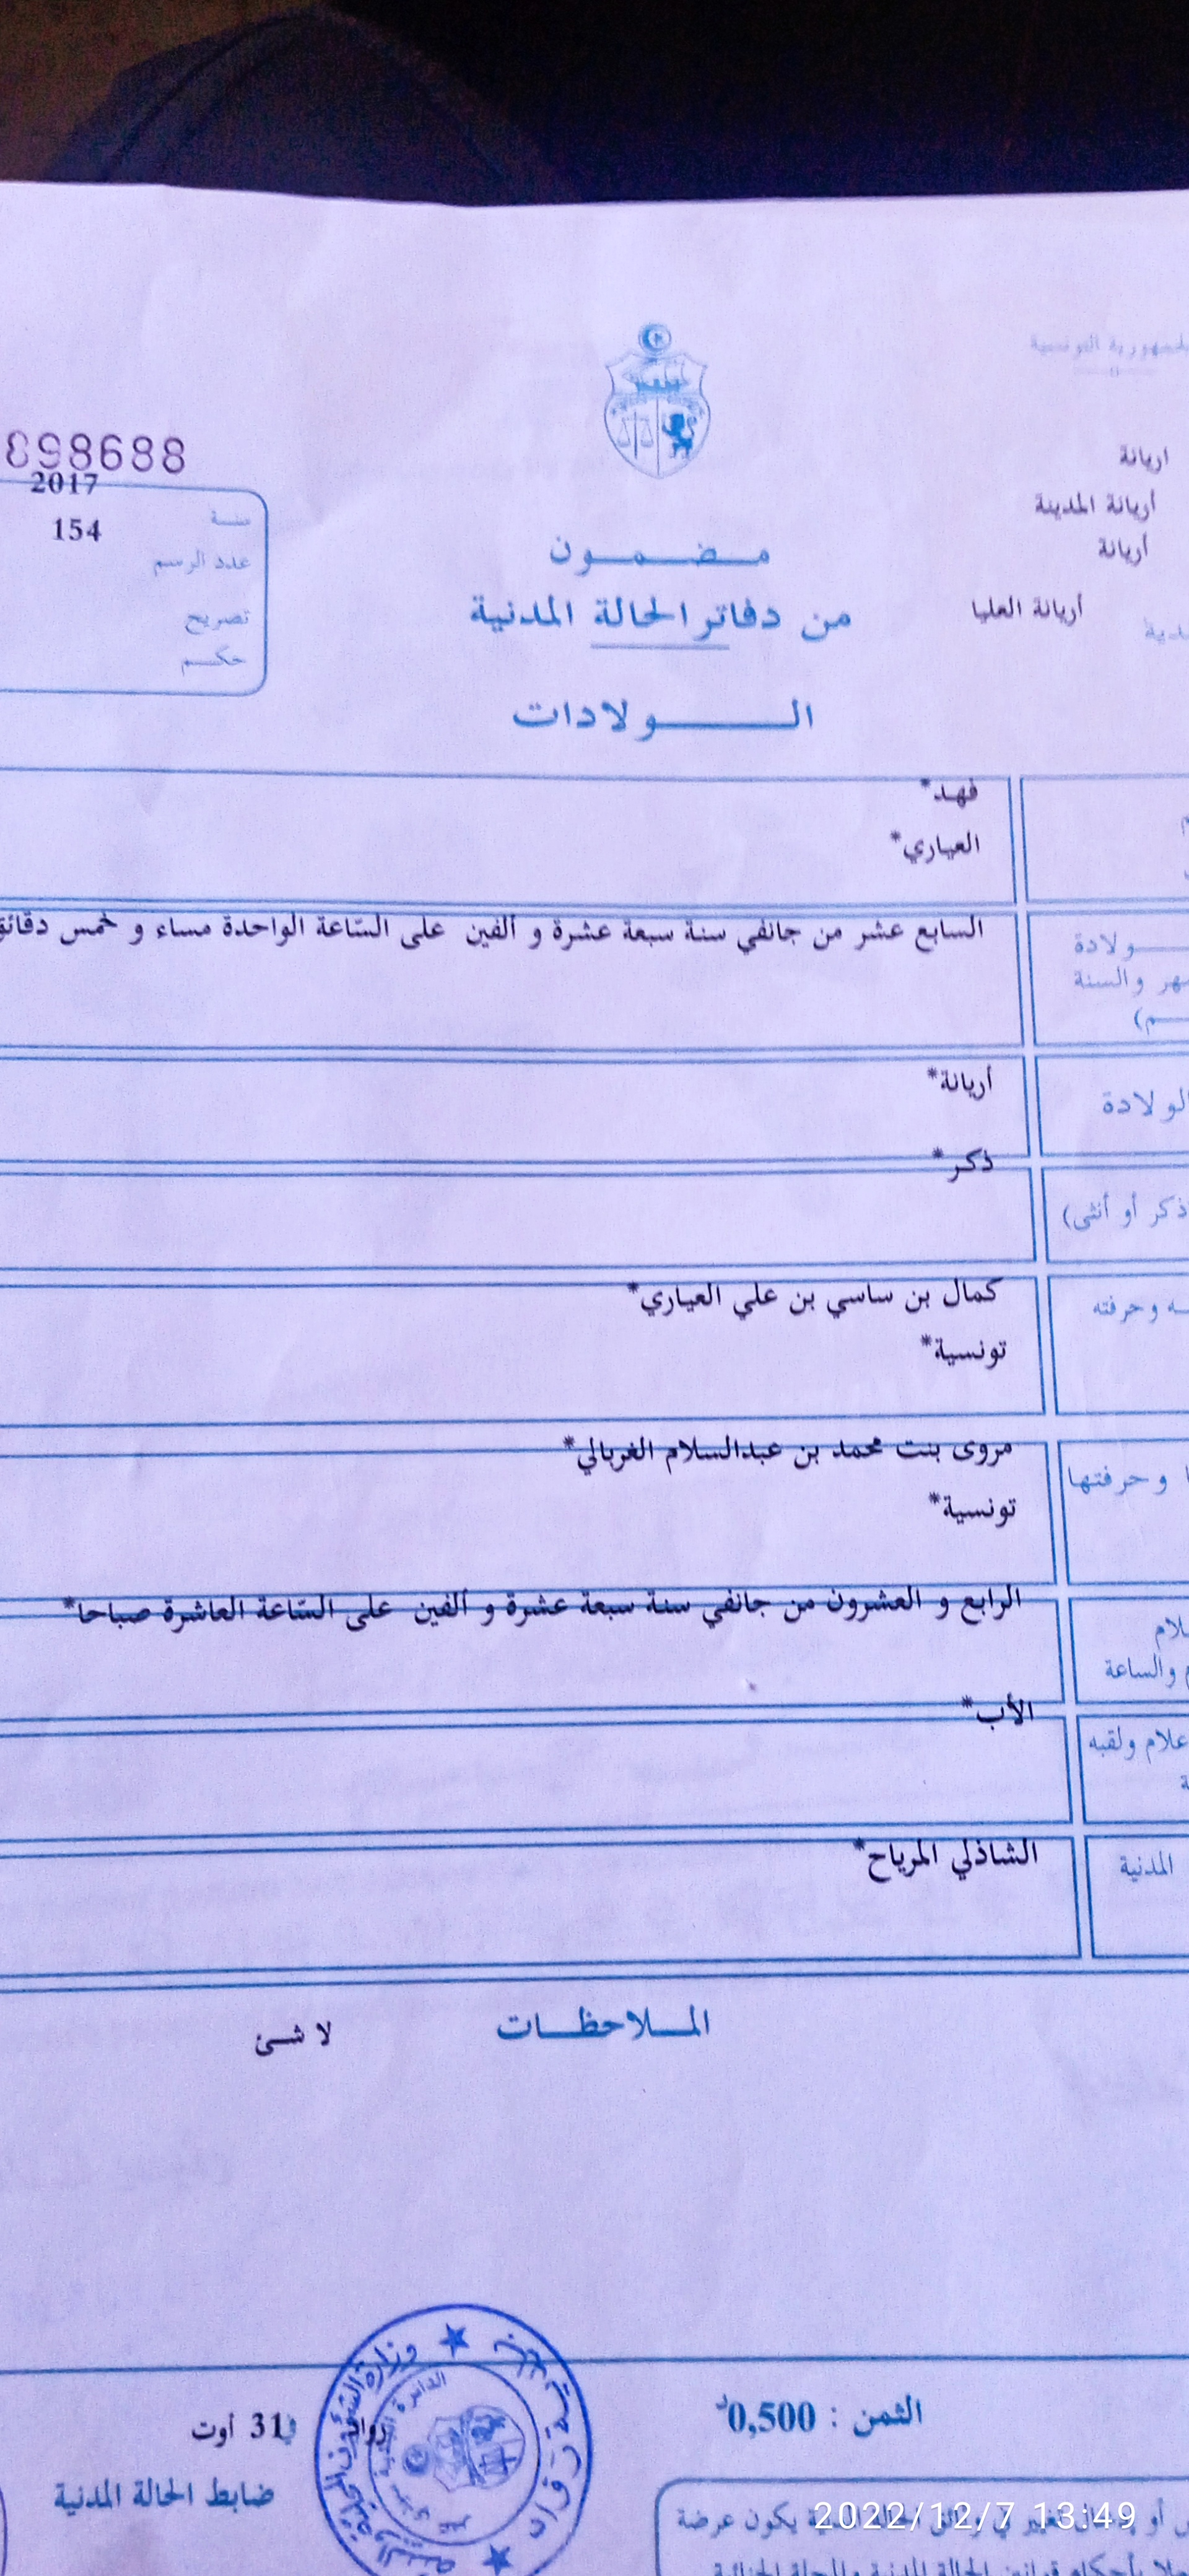 الجمهورية التونسية
اريانة
أريانة المدينة
أريانة
أريانة العليا
898688
2017
سنة
154
عدد الرسم
تصريح
حكم
مضمون
من دفاتر الحالة المدنية
الولادات
فهد*
العياري*
السابع عشر من جانفي سنة سبعة عشرة و ألفين على الساعة الواحدة مساء و خمس دقائق
ولادة
والسنة
أريانة*
الولادة
ذكر*
ذكر أو أنثى)
كمال بن ساسي بن علي العياري*
وحرفته
تونسية*
مروى بنت محمد بن عبدالسلام الغربالي*
وحرفتها
تونسية*
الرابع و العشرون من جانفي سنة سبعة عشرة و ألفين على الساعة العاشرة صباحا*
والساعة
الأب*
ولقبه
الشاذلي المرياح*
المدنية
الملاحظات
لا شئ
الثمن : 0,500د
31 أوت
ضابط الحالة المدنية
يكون عرضة
2022/12/7 13:49